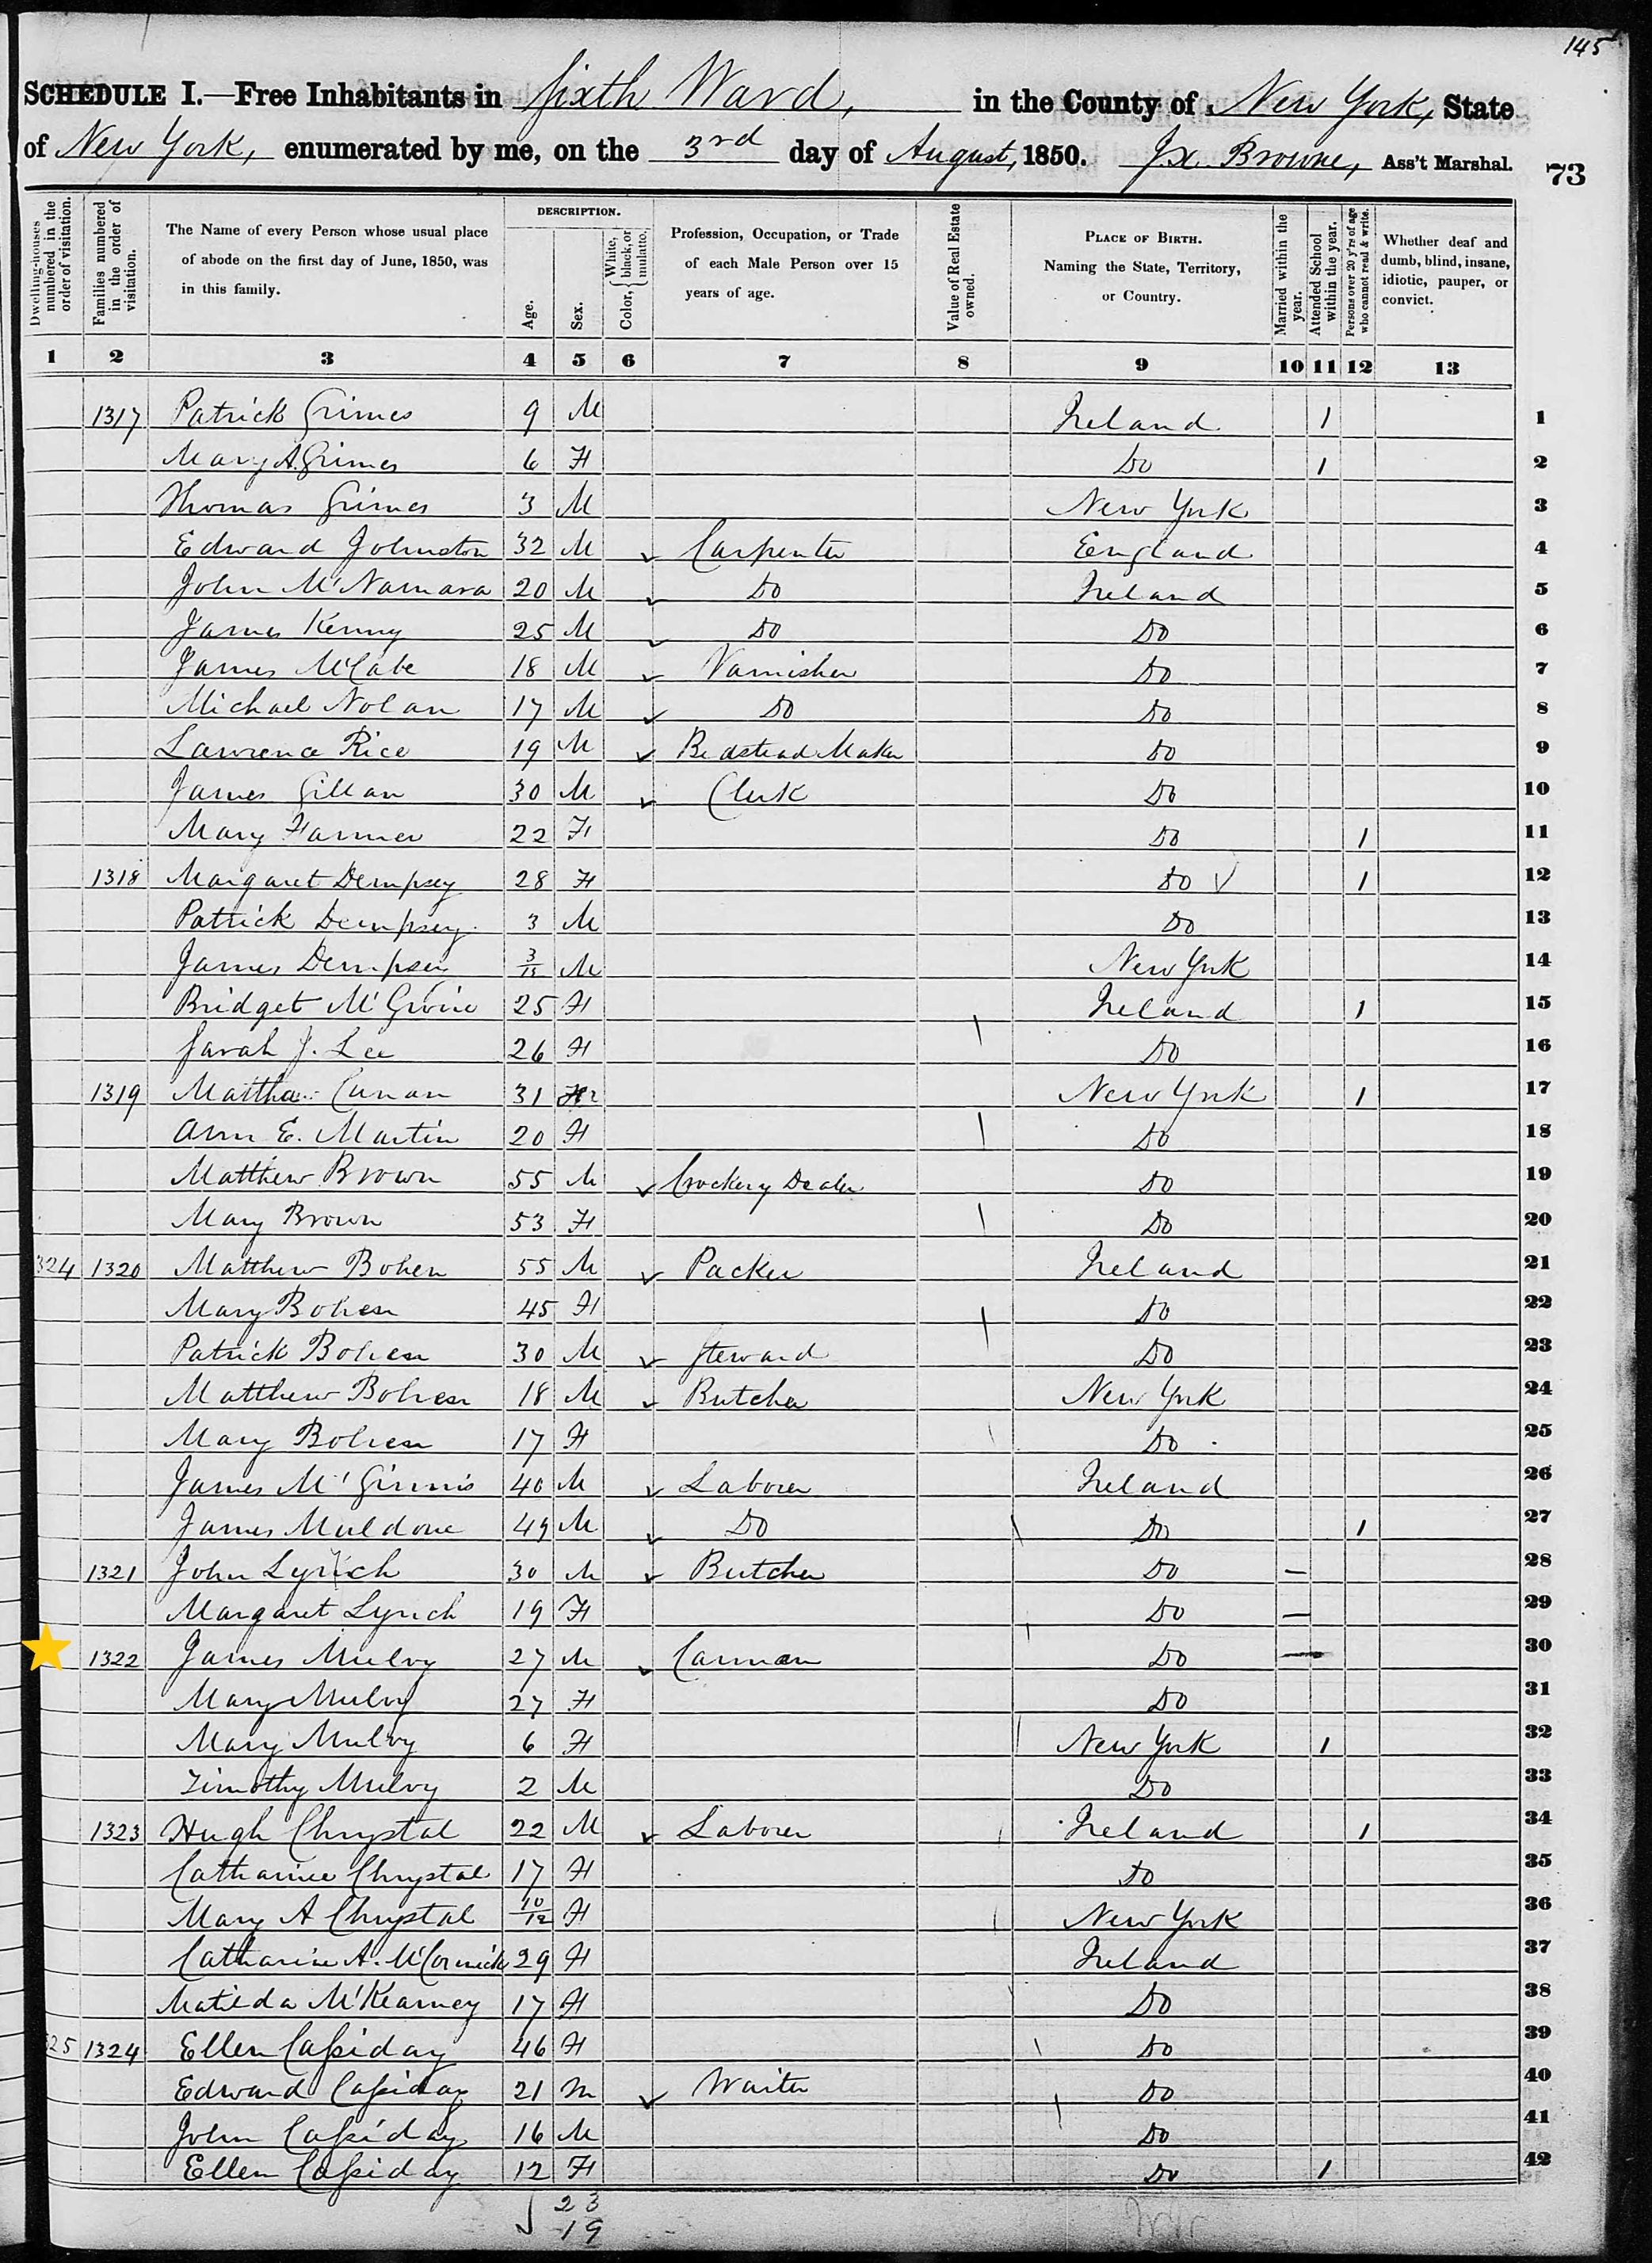 145
SCHEDULE I.—Free Inhabitants in Sixth Ward, in the County of New York, State
of New York, enumerated by me, on the 3rd day of August, 1850. Jas. Browne, Ass't Marshal. 73
Dwelling-houses numbered in the order of visitation.
Families numbered in the order of visitation.
The Name of every Person whose usual place of abode on the first day of June, 1850, was in this family.
DESCRIPTION.
Age.
Sex.
Color, { White, black, or mulatto.
Profession, Occupation, or Trade of each Male Person over 15 years of age.
Value of Real Estate owned.
PLACE OF BIRTH. Naming the State, Territory, or Country.
Married within the year.
Attended School within the year.
Persons over 20 y'rs of age who cannot read & write.
Whether deaf and dumb, blind, insane, idiotic, pauper, or convict.
1 2 3 4 5 6 7 8 9 10 11 12 13
1317 Patrick Grimes 9 M Ireland 1 1
Mary A. Grimes 6 F Do 1 2
Thomas Grimes 3 M New York 3
Edward Johnston 32 M Carpenter Eengland 4
John McNamara 20 M Do Ireland 5
James Kenny 25 M Do Do 6
James McCabe 18 M Varnisher Do 7
Michael Nolan 17 M Do Do 8
Lawrence Rice 19 M Bedstead Maker Do 9
James Gillan 30 M Clerk Do 10
Mary Farmer 22 F Do 1 11
1318 Margaret Dempsey 28 F Do 1 12
Patrick Dempsey 3 M Do 13
James Dempsey M New York 14
Bridget 25 F Ireland 1 15
Sarah J. Lee 26 F Do 16
1319 Curran 31 New York 1 17
Ann E. Martin 20 F Do 18
Matthew Brown 55 M Crockery Dealer Do 19
Mary Brown 53 F Do 20
324 1320 Matthew Bohen 55 M Packer Ireland 21
Mary Bohen 45 F Do 22
Patrick Bohen 30 M Steward Do 23
Matthew Bohen 18 M Butcher New York 24
Mary Bohen 17 F Do 25
James McGinnis 40 M Laborer Ireland 26
James Muldone 49 M Do Do 1 27
1321 John Lynch 30 M Butcher Do 28
Margaret Lynch 19 F Do 29
1322 James Mulvy 27 M Carman Do 30
Mary Mulvy 27 F Do 31
Mary Mulvy 6 F New York 1 32
Timothy Mulvy 2 M Do 33
1323 Hugh Chrystal 22 M Laborer Ireland 1 34
Catharine Chrystal 17 F Do 35
Mary A Chrystal 10/12 F New York 36
Catharine A. McCormick 29 F Ireland 37
Matilda McKearney 17 F Do 38
325 1324 Ellen Cassiday 46 F Do 39
Edward Cassiday 21 M Waiter Do 40
John Cassiday 16 M Do 41
Ellen Cassiday 12 F Do 1 42
23
19